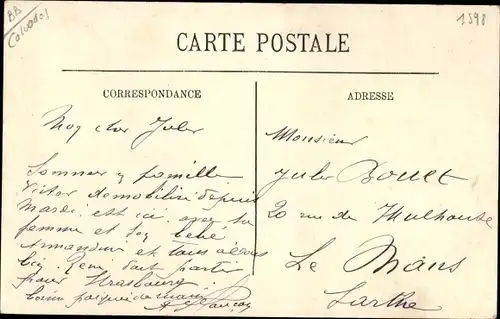 BB
Calvados
1598
CARTE POSTALE
CORRESPONDANCE
Mon cher Jules
Sommes en famille
Victor démobilisé depuis
Mardi est ici avec sa
femme et son bébé
Armandine et tous allons
bien René doit partir
pour Strasbourg
ADRESSE
Monsieur
Jules Bouet
20 rue de Mulhouse
Le Mans
Sarthe